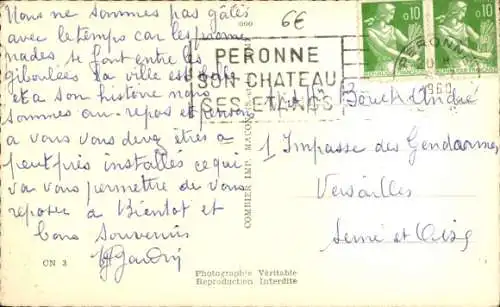 Nous ne sommes pas gâtés
avec le temps car les prome
nades se font entre les
giboulées la ville est
et a son histoire nous
sommes au repos et
a vous vous devez êtres a
peut près installés ce qui
va vous permettre de vous
reposer à Bientot et
bons Souvenirs
CN 3
6€
PERONNE
SON CHATEAU
SES ETANGS
COMBIER IMP. MACON
0,10
0,10
PERONNE
1960
André
1 Impasse des Gendarmes
Versailles
Seine et Oise
Photographie Véritable
Reproduction Interdite